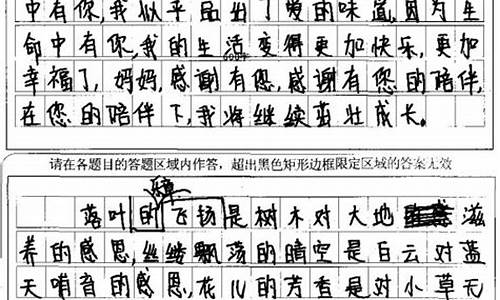 中有你,我似乎品出了爱的味道,因为生
命中有你,我的生活变得更加快乐,更加
600字
幸福了,妈妈,感谢有您,感谢有您的陪伴,
在您的陪伴下,我将继续茁壮成长。
请在各题目的答题区域内作答,超出黑色矩形边框限定区域的答案无效
落叶的飞扬是树木对大地滋
养的感恩,丝缕飘荡的晴空是白云对蓝
天哨音的感恩,花儿的芳香是对小草无